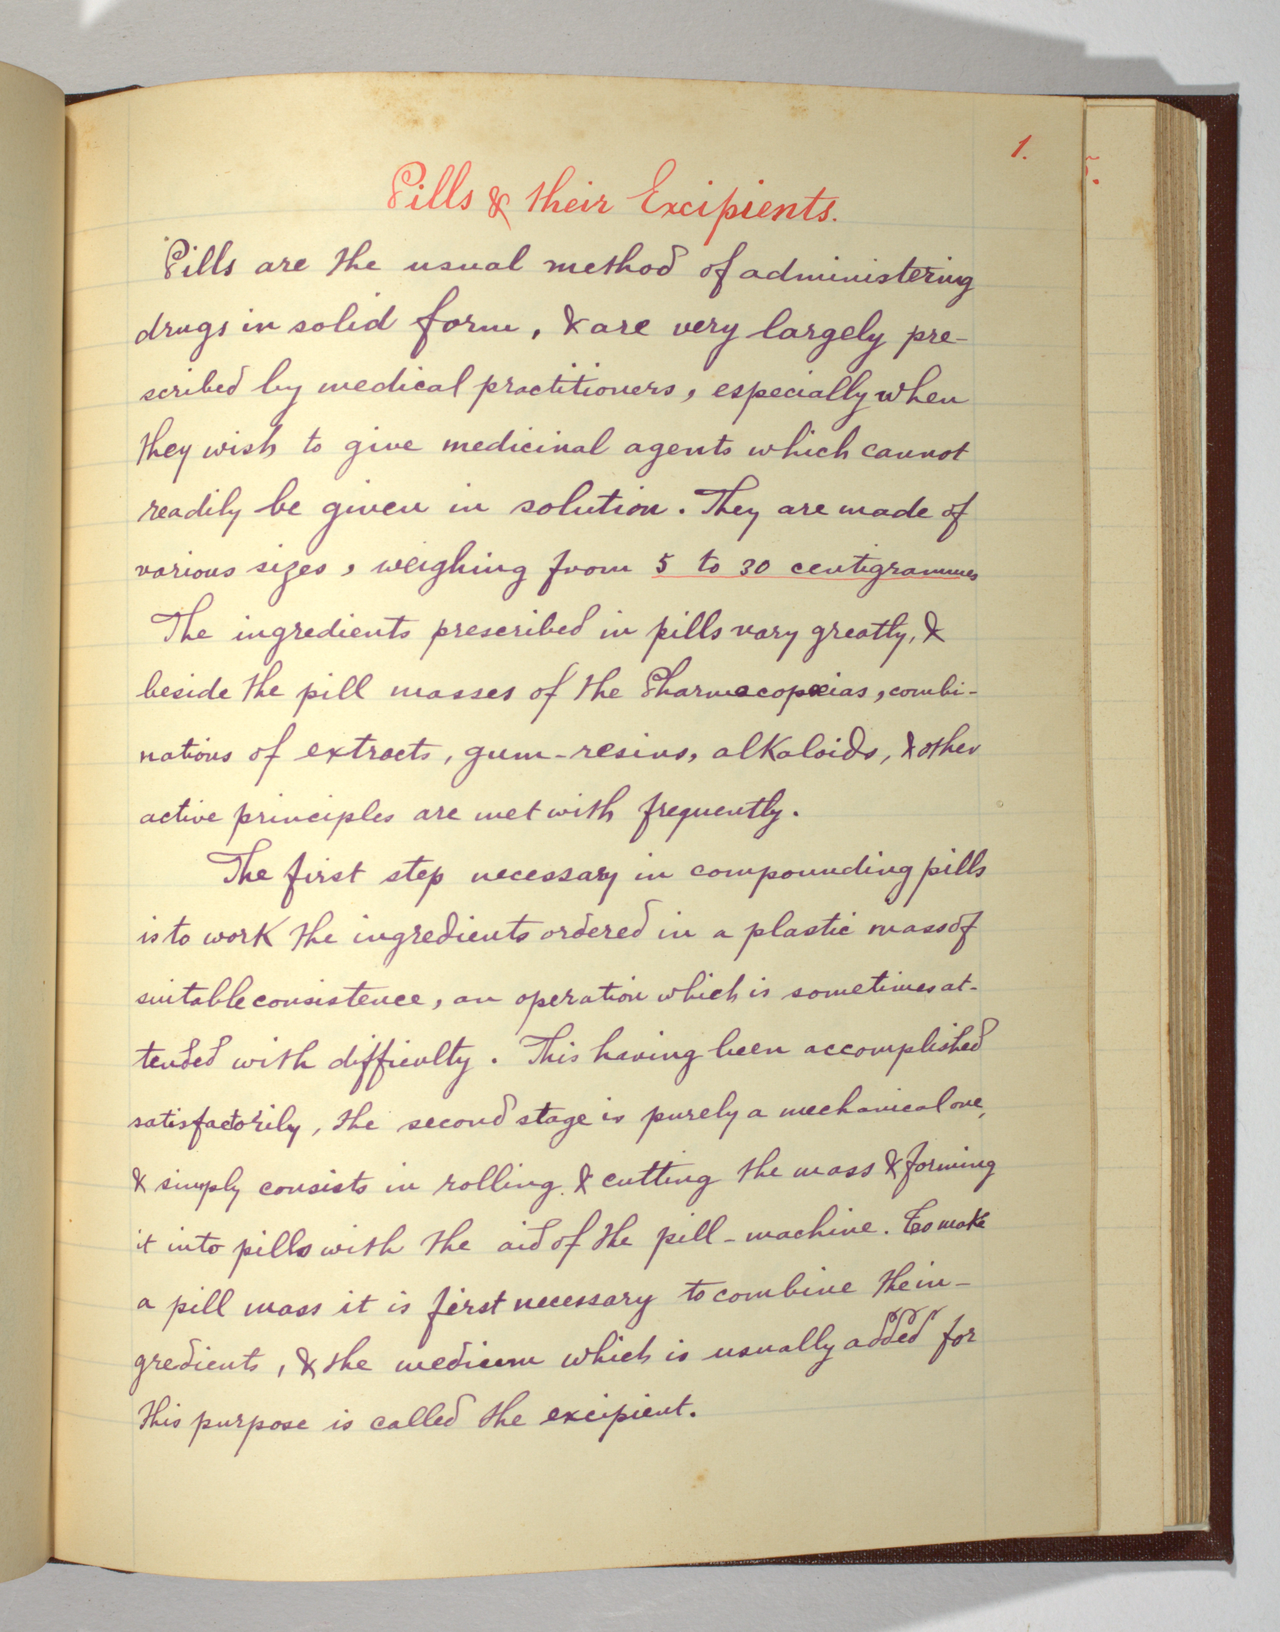 1.
Pills & their Excipients.
Pills are the usual method of administering
drugs in solid form, & are very largely pre-
scribed by medical practitioners, especially when
they wish to give medicinal agents which cannot
readily be given in solution. They are made of
various sizes, weighing from 5 to 30 centigrammes
The ingredients prescribed in pills vary greatly, &
beside the pill masses of the Pharmacopœias, combi-
nations of extracts, gum-resins, alkaloids, & other
active principles are met with frequently.
The first step necessary in compounding pills
is to work the ingredients ordered in a plastic mass of
suitable consistence, an operation which is sometimes at-
tended with difficulty. This having been accomplished
satisfactorily, the second stage is purely a mechanical one,
& simply consists in rolling & cutting the mass & forming
it into pills with the aid of the pill-machine. To make
a pill mass it is first necessary to combine the in-
gredients, & the medium which is usually added for
this purpose is called the excipient.